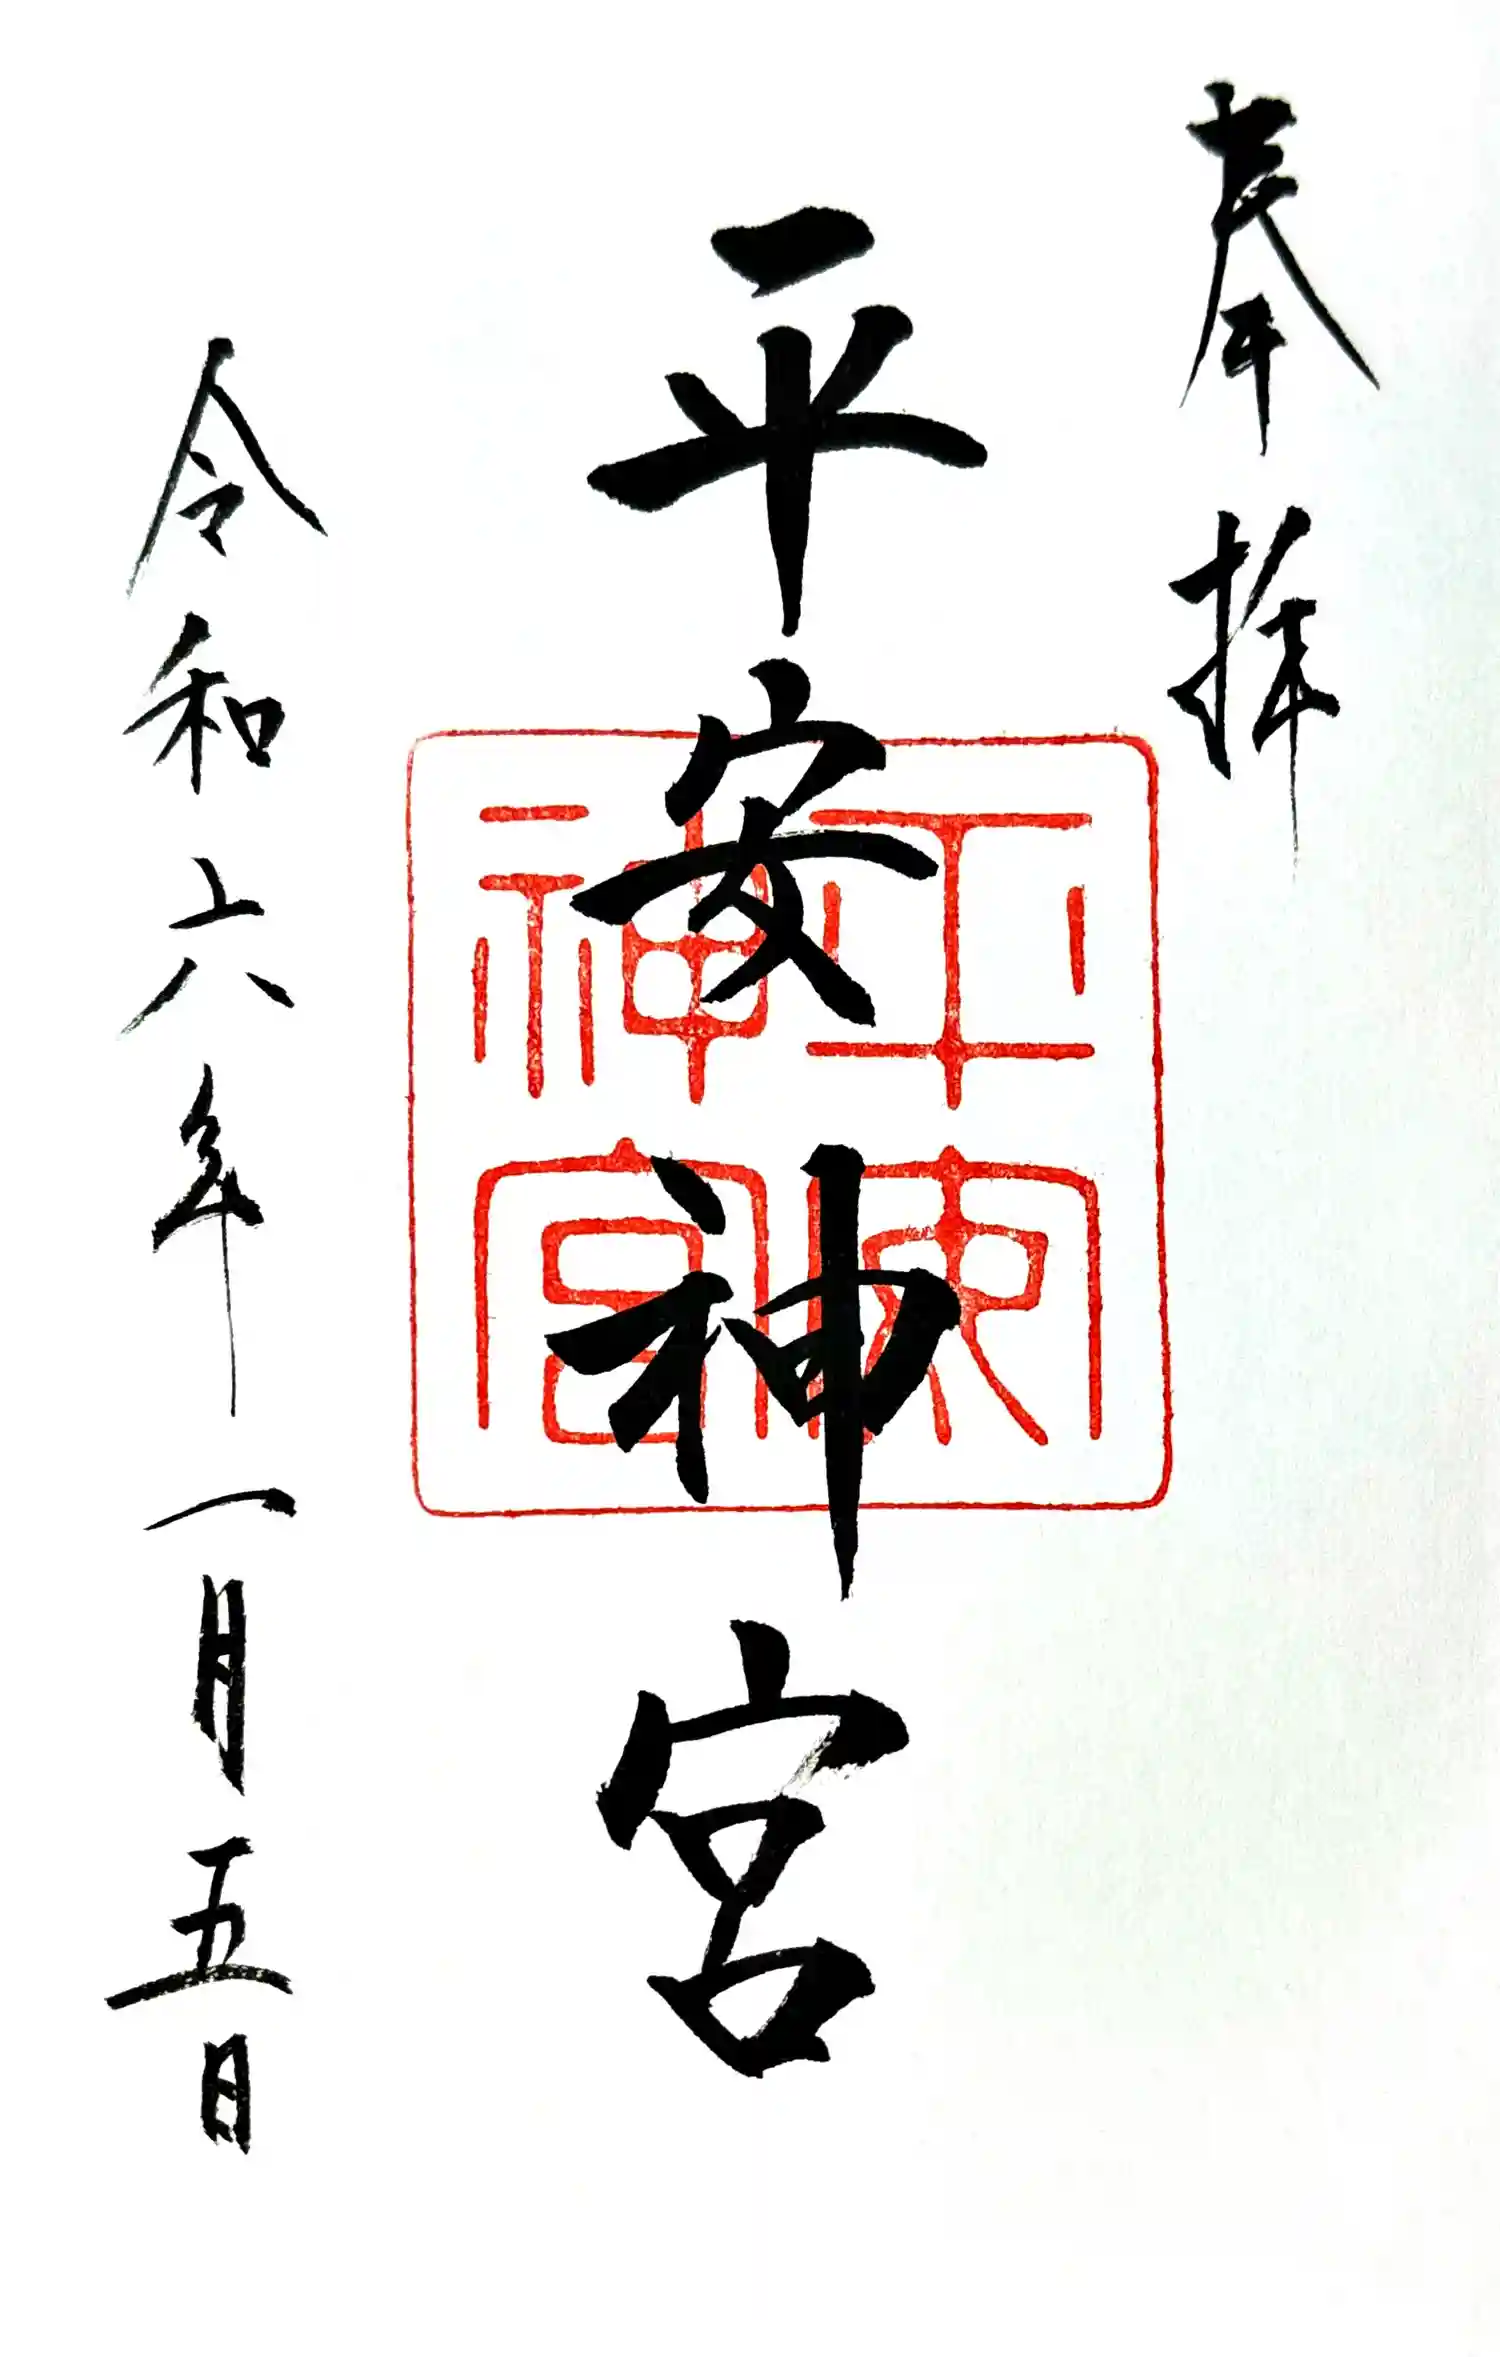 奉拝
平安神宮
平安神宮
令和六年一月五日